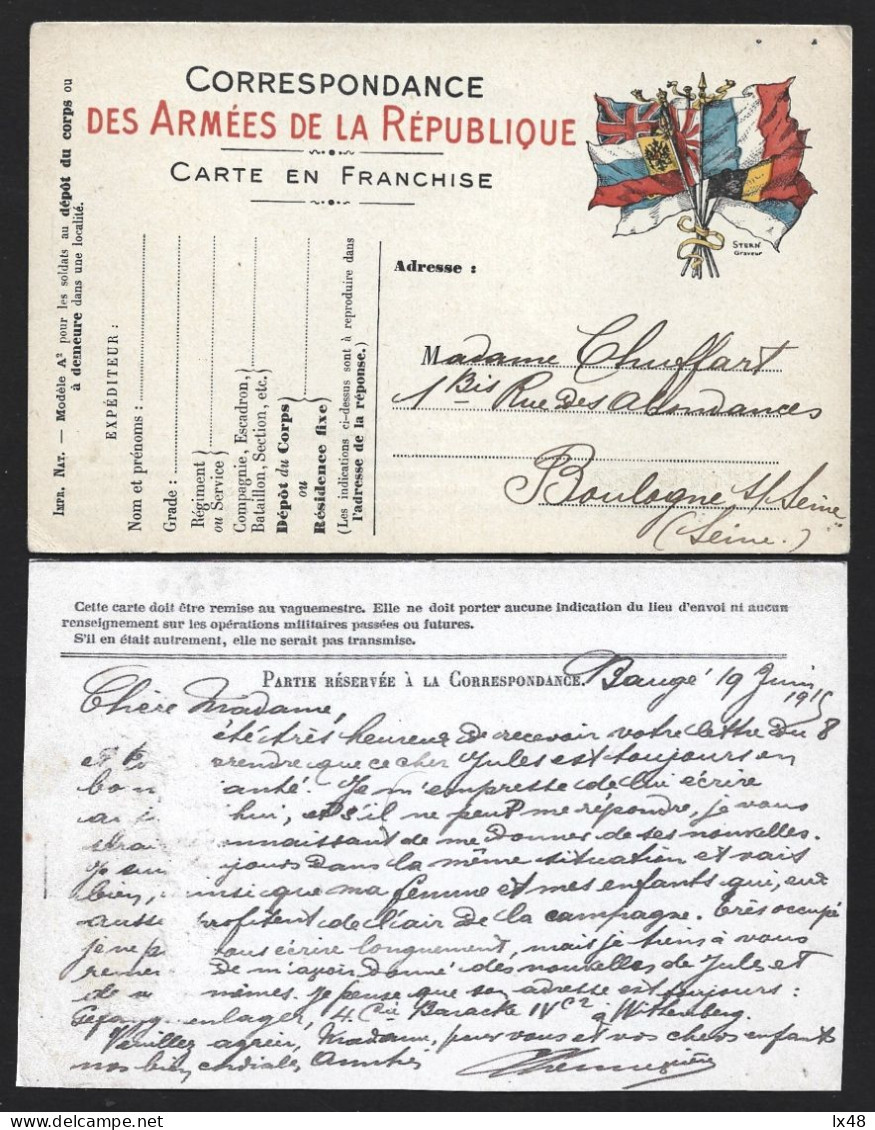 CORRESPONDANCE
DES ARMÉES DE LA RÉPUBLIQUE
CARTE EN FRANCHISE
STERN
Graveur
IMPR. NAT. — Modèle A² pour les soldats au dépôt du corps ou
à demeure dans une localité.
EXPÉDITEUR :
Nom et prénoms :
Grade :
Régiment
ou Service
Compagnie, Escadron,
Bataillon, Section, etc.
Dépôt du Corps
ou
Résidence fixe
(Les indications ci-dessus sont à reproduire dans
l'adresse de la réponse.)
Adresse :
Madame Chuffart
1 Bis Rue des Abondances
Boulogne s/ Seine
(Seine.)
Cette carte doit être remise au vaguemestre. Elle ne doit porter aucune indication du lieu d'envoi ni aucun
renseignement sur les opérations militaires passées ou futures.
S'il en était autrement, elle ne serait pas transmise.
PARTIE RÉSERVÉE À LA CORRESPONDANCE. Baugé 19 Juin
1915
Chère Madame,
été très heureux de recevoir votre lettre du 8
et rendre que ce cher Jules est toujours en
bon anté. Je m'empresse de lui écrire
hui, et s'il ne peut me répondre, je vous
serai nnaissant de me donner de ses nouvelles.
Je jours dans la même situation et vais
bien, insi que ma femme et mes enfants qui, eux
aussi rofitent de l'air de la campagne. Très occupé
je ne p ous écrire longuement, mais je tiens à vous
remer de m'avoir donné des nouvelles de Jules et
de mêmes. Je pense que son adresse est toujours :
Gefang enlager, 4. Cie Baracke IV c2 à Wittenberg.
Veuillez agréer, Madame, pour vous et vos chers enfants
nos bien cordiales Amitiés
lx48